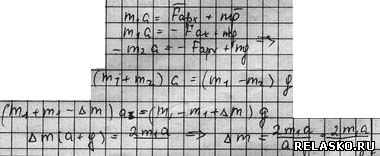 m₁a = Fарх + mg
m₁a = - Fах + mg
- m₂a = - Fарх + mg ⇒
(m₁+m₂) a = (m₁ - m₂) g
(m₁+m₁-Δm) aₓ = (m₁-m₁+Δm) g
Δm (a+g) = 2m₁a ⇒ Δm = 2m₁a = 2m₁a
RELASKO.RU